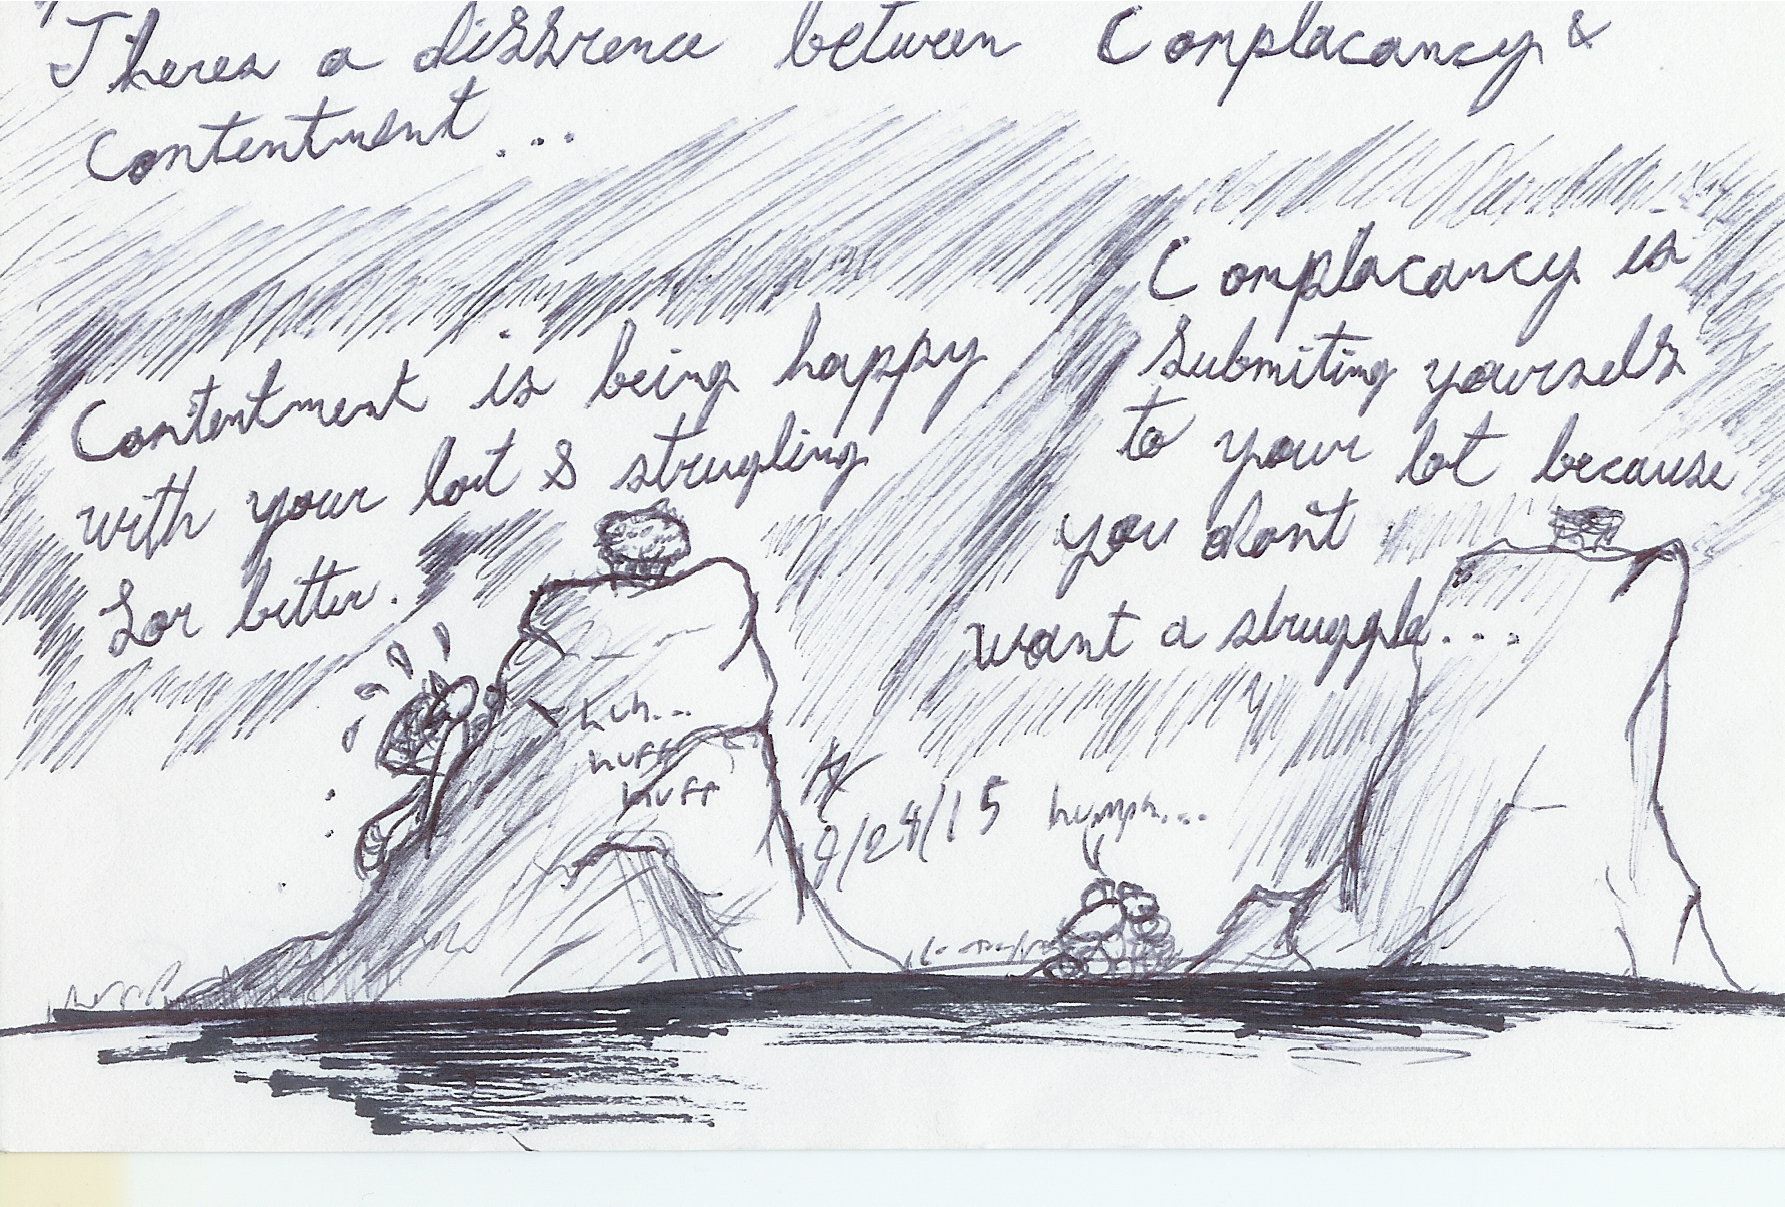 Theres a diffrence between Complacancy &
Contentment...
Contentment is being happy
with your lot & strugling
for better.
Complacancy is
submiting yourself
to your lot because
you dont
want a struggle...
huh...
huff
huff
humph...